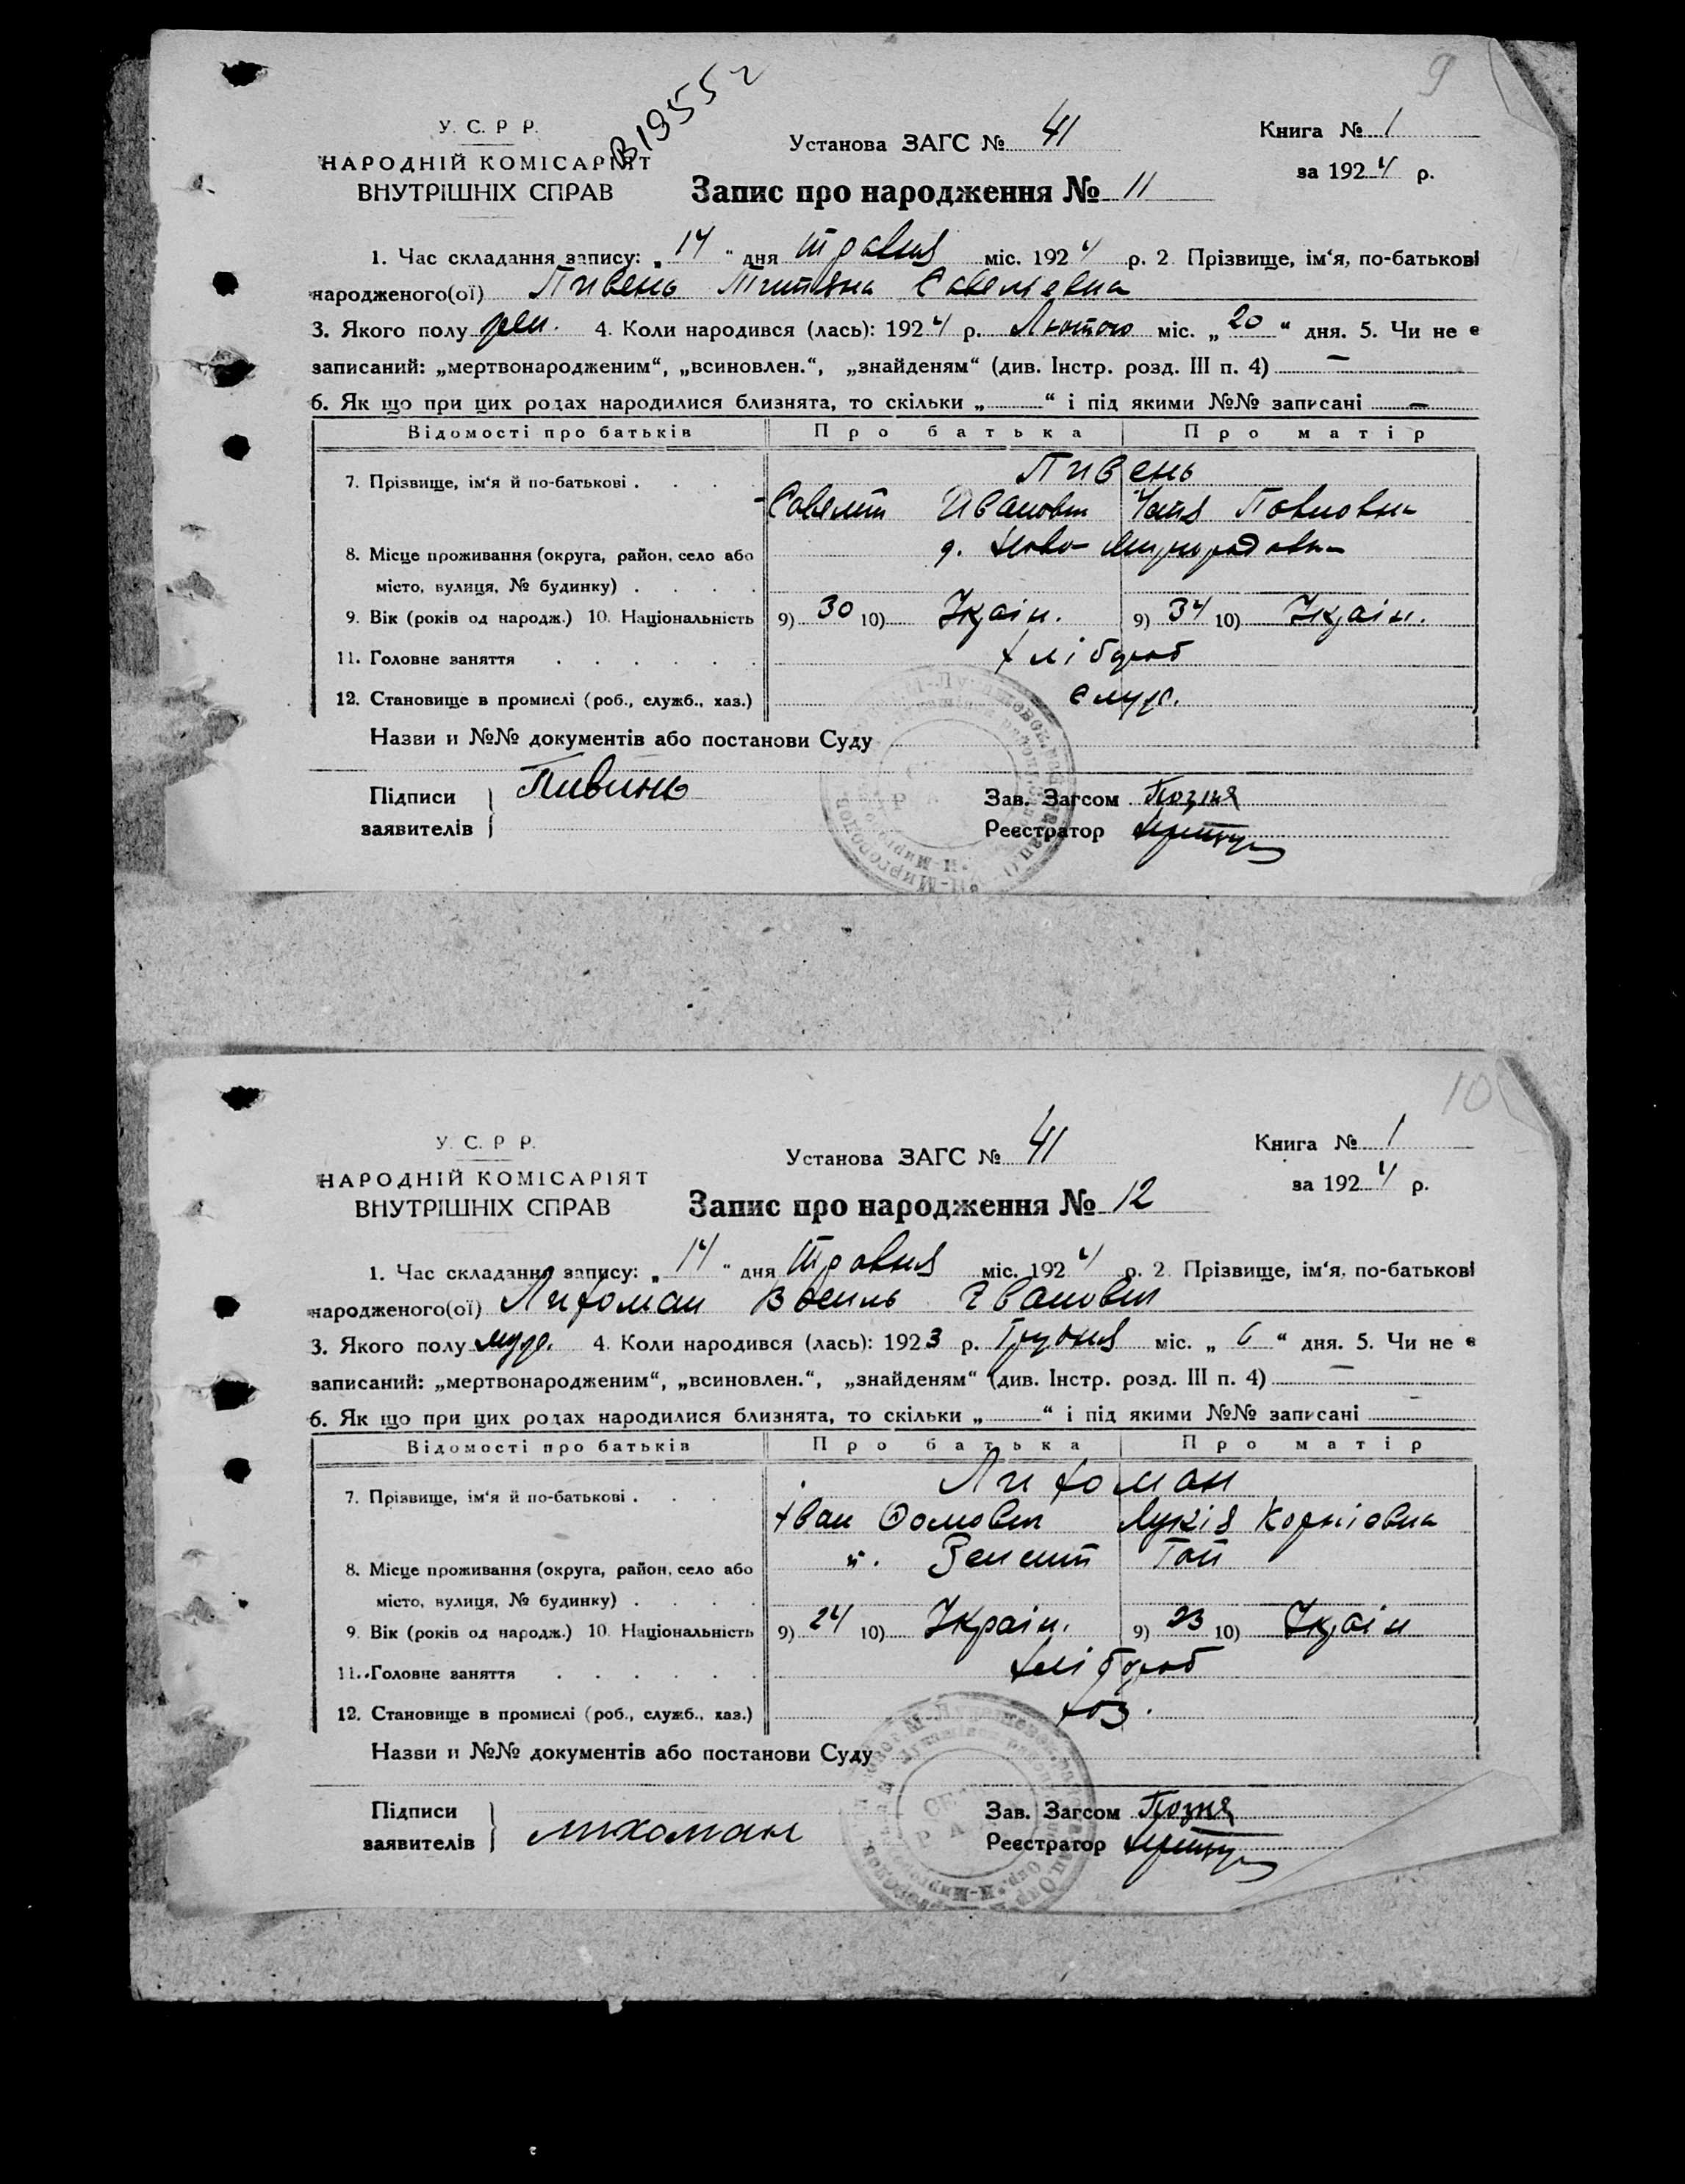 9
В19552
У. С. Р Р.
НАРОДНІЙ КОМІСАРІЯТ
ВНУТРІШНІХ СПРАВ
Установа ЗАГС № 41
Книга № 1
за 1924 р.
Запис про народження № 11
1. Час складання запису: „14“ дня Травня міс. 1924 р. 2. Прізвище, ім‘я, по-батькові
народженого(ої) Пивень Титяна Савельевна
3. Якого полу жен. 4. Коли народився (лась): 1924 р. Лютого міс. „20“ дня. 5. Чи не є
записаний: „мертвонародженим“, „всиновлен.“, „знайденям“ (див. Інстр. розд. III п. 4) —
6. Як що при цих родах народилися близнята, то скільки „ “ і під якими №№ записані —
Відомості про батьків Про батька Про матір
7. Прізвище, ім‘я й по-батькові . . . . Пивень
Савелит Иванович Павловна
8. Місце проживання (округа, район, село або
місто, вулиця, № будинку) . . . .
9. Вік (років од народж.) 10. Національність 9) 30 10) Україн. 9) 34 10) Україн.
11. Головне заняття . . . . . . хлібороб
12. Становище в промислі (роб., служб., хаз.) служ.
Назви й №№ документів або постанови Суду
Підписи
заявителів
Пивинь
Зав. Загсом
Реєстратор
10
У. С. Р Р.
НАРОДНІЙ КОМІСАРІЯТ
ВНУТРІШНІХ СПРАВ
Установа ЗАГС № 41
Книга № 1
за 1924 р.
Запис про народження № 12
1. Час складання запису: „14“ дня Травня міс. 1924 р. 2. Прізвище, ім‘я, по-батькові
народженого(ої) Лихоман Василь Іванович
3. Якого полу муж. 4. Коли народився (лась): 1923 р. Грудня міс. „6“ дня. 5. Чи не є
записаний: „мертвонародженим“, „всиновлен.“, „знайденям“ (див. Інстр. розд. III п. 4) —
6. Як що при цих родах народилися близнята, то скільки „ “ і під якими №№ записані
Відомості про батьків Про батька Про матір
7. Прізвище, ім‘я й по-батькові . . . . Лихоман
Іван Фомович Лукія Корніовна
8. Місце проживання (округа, район, село або х. Зелений Гай
місто, вулиця, № будинку) . . . .
9. Вік (років од народж.) 10. Національність 9) 24 10) Україн. 9) 23 10) Україн
11. Головне заняття . . . . . . хлібороб
12. Становище в промислі (роб., служб., хаз.) хоз.
Назви й №№ документів або постанови Суду
Підписи
заявителів
лихоман
Зав. Загсом
Реєстратор